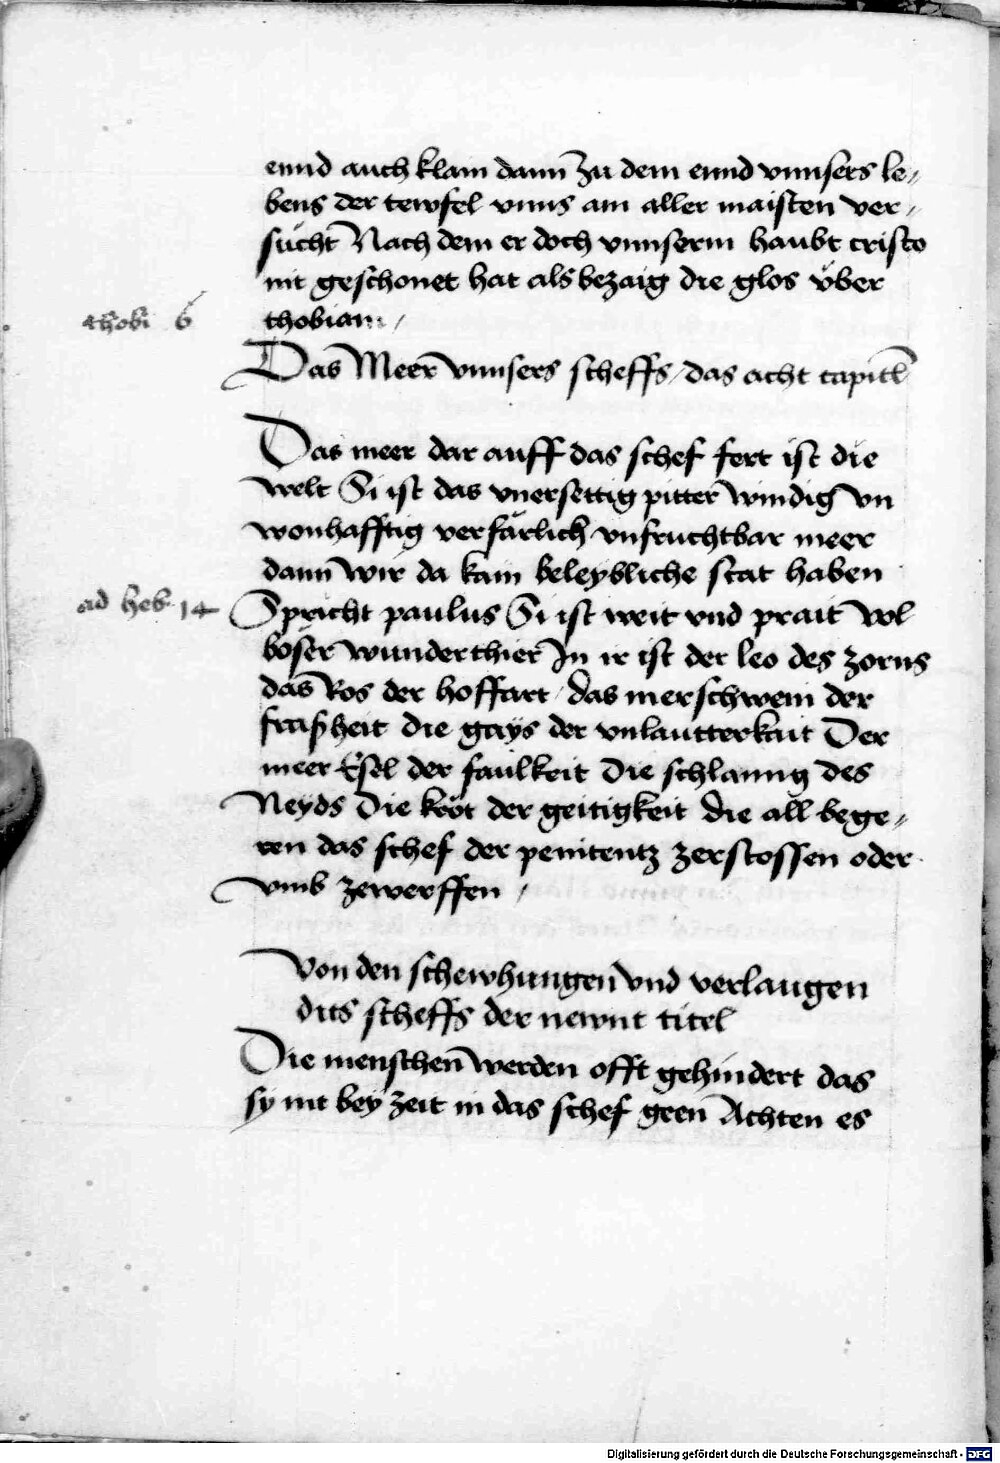 ennd auch klain dann zu dem ennd vnnsers le,,
bens der tewfel vnns am aller maisten ver,,
sucht Nach dem er doch vnnserm haubt cristo
nit geschonet hat als bezaig die glos vber
thobi 6 thobiam /
Das Meer vnnsers scheffs / das acht capitl
Das meer dar auff das schef fert ist die
welt Si ist das vnersettig pitter windig vn
wonhafftig verfarlich vnfruchtbar meer
dann wir da kain beleybliche stat haben
ad heb 14 Spricht paulus Si ist weit vnd prait vol
boser wunderthier In ir ist der leo des zorns
das Ros der hoffart / das merschwein der
fraßheit die gays der vnlautterkait Der
meer Esel der faulkeit Die schlanng des
Neyds Die krot der geitigkeit die all bege,,
ren das schef der penitentz zerstossen oder
vmb zewerffen /
Von den schewhungen vnd verlaugen
dits scheffs der newnt titel
Die menschen werden offt gehindert das
sy nit bey zeit in das schef geen Achten es
Digitalisierung gefördert durch die Deutsche Forschungsgemeinschaft - DFG